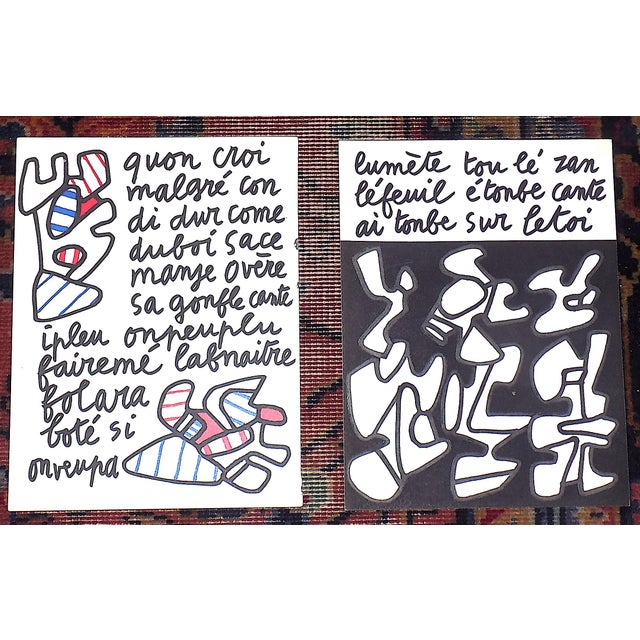 quon croi
malgré con
di dur come
duboi sace
manje overe
sa gonfle cante
ipleu onpeuplu
fairemé labnaitre
folara
boté si
onveupa
lumète tou lé zan
léfeuil étonbe cante
ai tonbe sur letoi